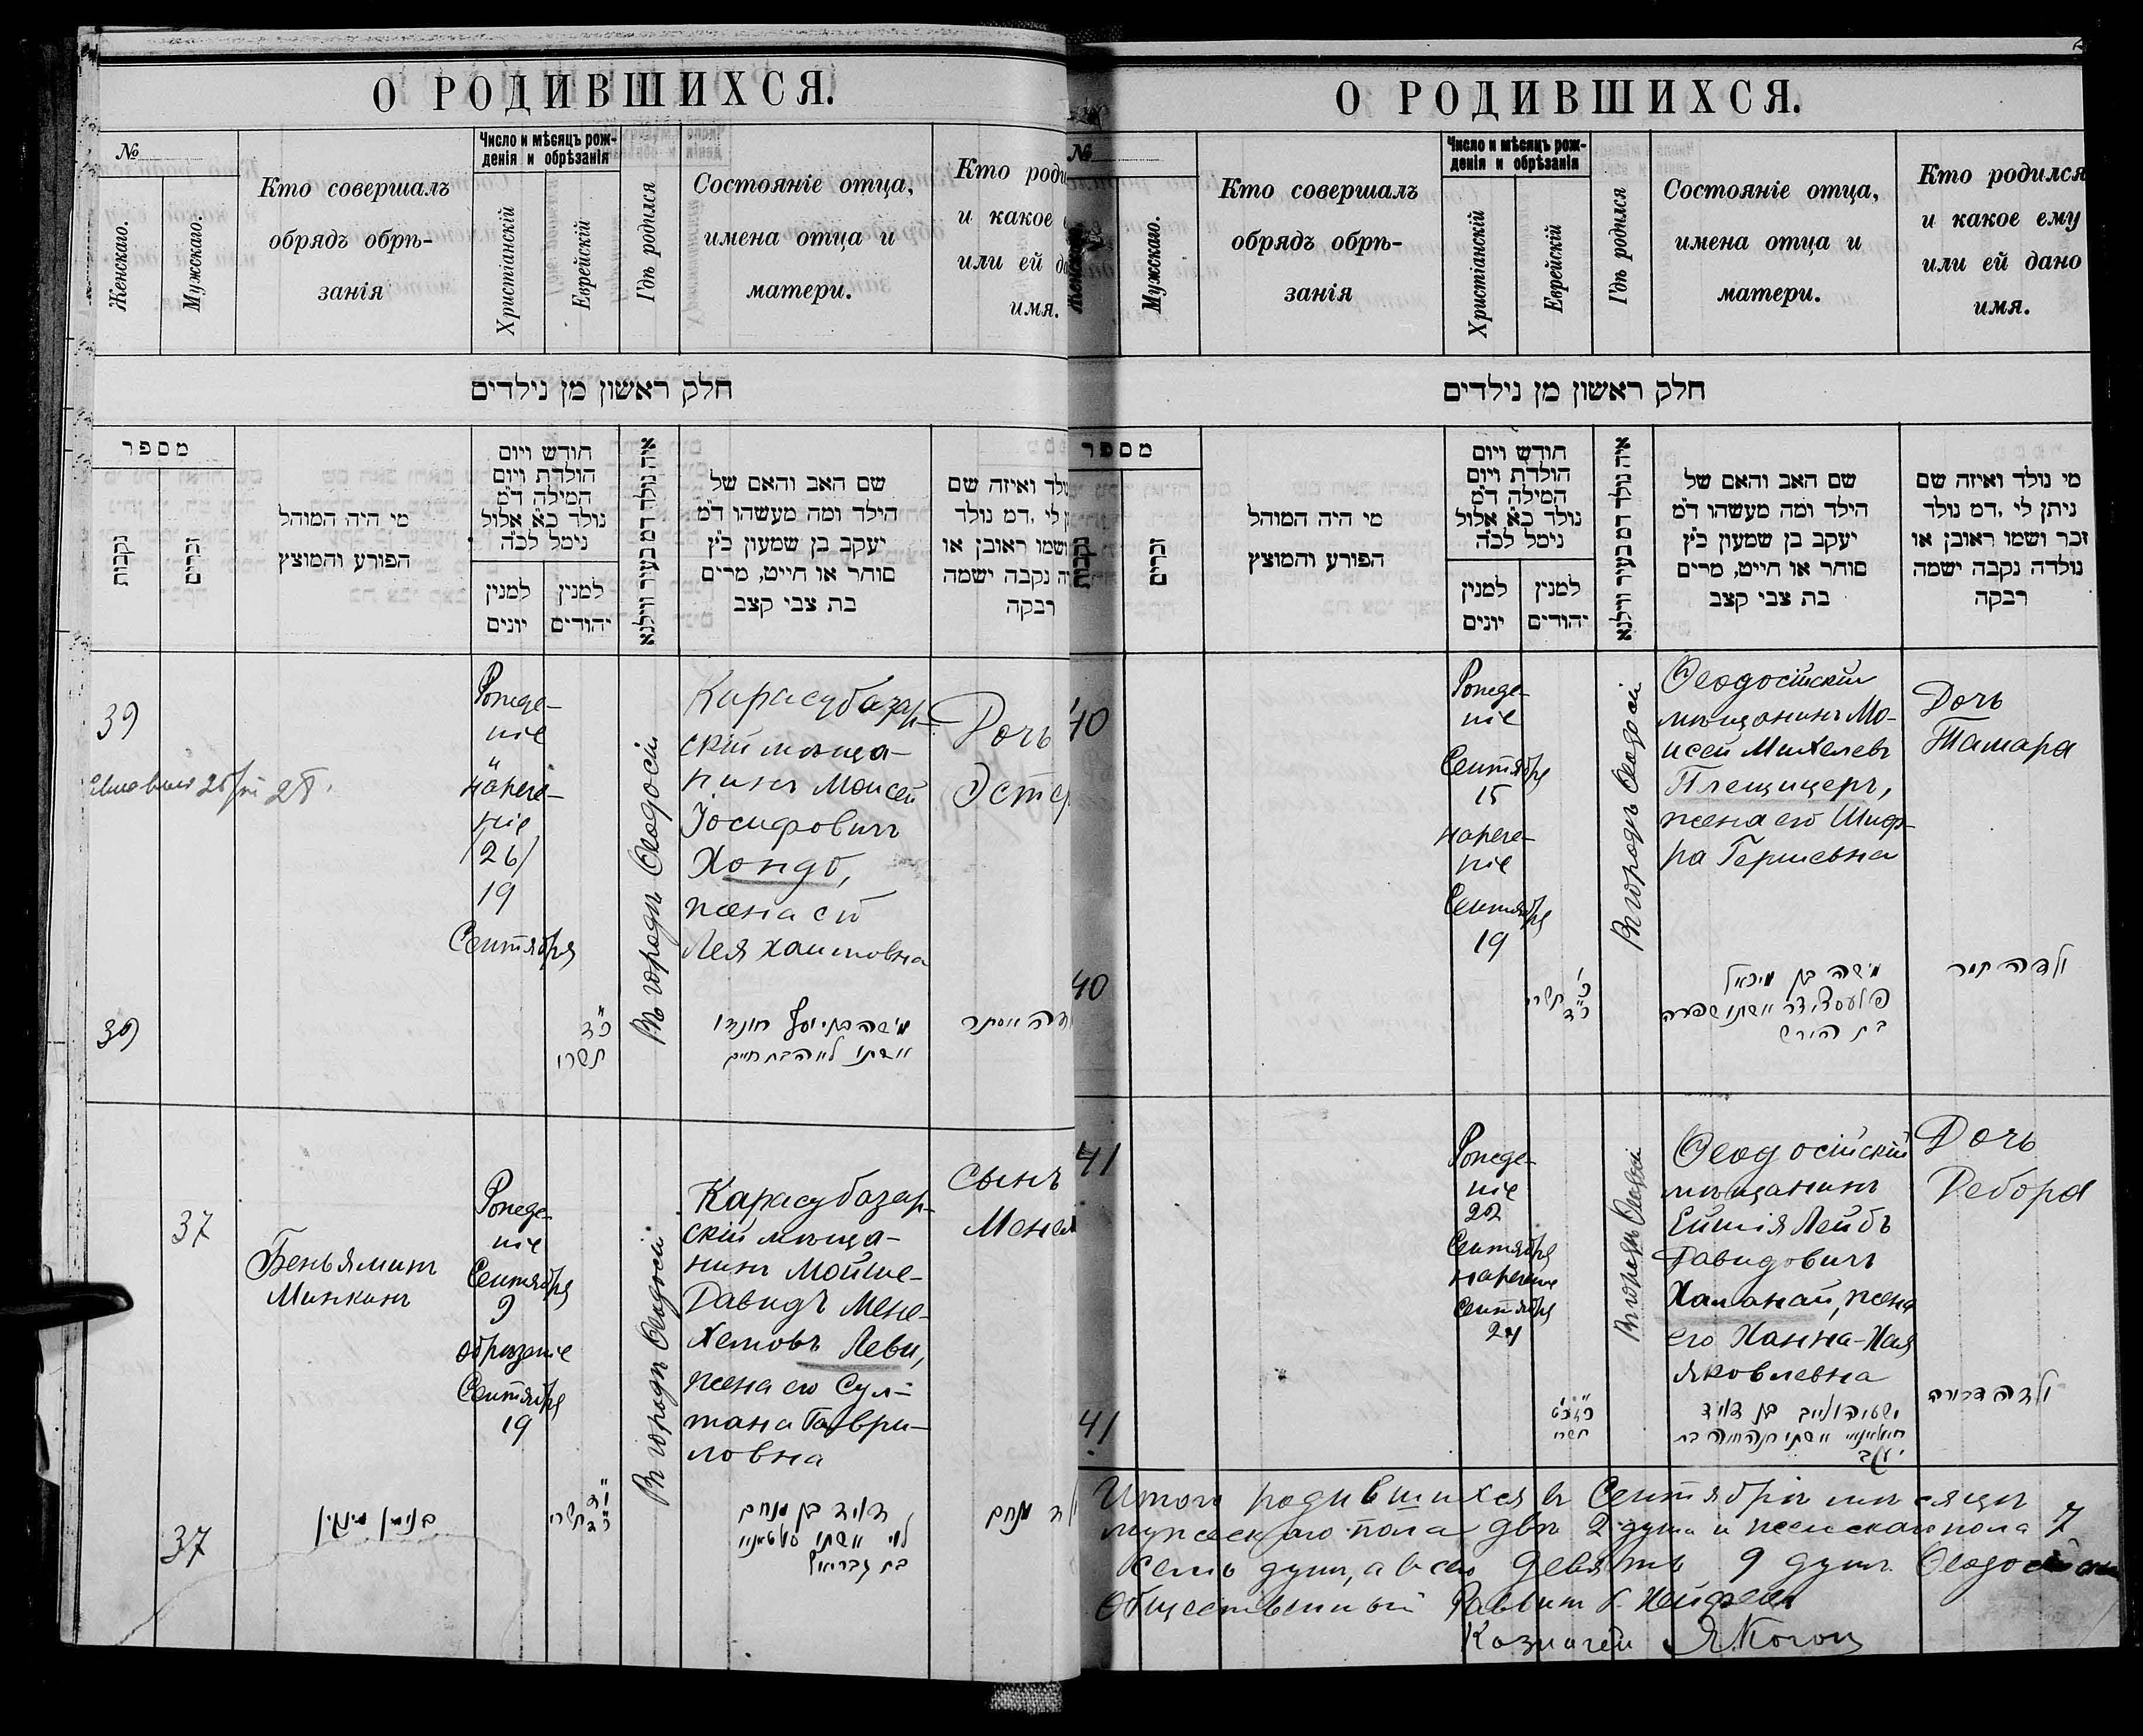 О РОДИВШИХСЯ.
№
Женскаго.
Мужскаго.
Кто совершалъ
обрядъ обрѣ-
занія
Число и мѣсяцъ рож-
денія и обрѣзанія
Христіанскій
Еврейскій
Гдѣ родился
Состояніе отца,
имена отца и
матери.
Кто роди
и какое
или ей да
имя.
חלק ראשון מן נילדים
מספר
נקבות
זכרים
מי היה המוהל
הפורע והמוצץ
חודש ויום
הולדת ויום
המילה ד"מ
נולד כ"א אלול
נימל לכ"ה
למנין
יונים
למנין
יהודים
איה נולד דמ בעיר ווילנא
שם האב והאם של
הילד ומה מעשהו ד"מ
יעקב בן שמעון כ"ץ
סוחר או חייט, מרים
בת צבי קצב
ולד ואיזה שם
ן לי, דמ נולד
ושמו ראובן או
ה נקבה ישמה
רבקה
39
Рожде-
ніе
наречe-
ніе
/26/
19
Сентября
Въ городѣ Ѳеодосіи
Карасубазар-
скій мѣща-
нинъ Моисей
Іосифовичъ
Хондо,
жена его
Лея Хаимовна
Дочь
Эсте
39
כ"ד
תשרי
משה בן יוסף חונדו
ואשתו לאה בת חיים
אסתר
37
Беньяминъ
Минкинъ
Рожде-
ніе
Сентября
9
обрѣзаніе
Сентября
19
Въ городѣ Ѳеодосіи
Карасубазар-
скій мѣща-
нинъ Мойше-
Давидъ Мене-
хемовъ Леви,
жена его Сул-
тана Гаври-
ловна
Сынъ
Менах
37
בנימין מינקין
תשרי
דוד בן מנחם
לוי ואשתו סולטאנא
בת גבריאל
ולד מנחם
О РОДИВШИХСЯ.
№
Женскаго.
Мужскаго.
Кто совершалъ
обрядъ обрѣ-
занія
Число и мѣсяцъ рож-
денія и обрѣзанія
Христіанскій
Еврейскій
Гдѣ родился
Состояніе отца,
имена отца и
матери.
Кто родился
и какое ему
или ей дано
имя.
חלק ראשון מן נילדים
מספר
נקבות
זכרים
מי היה המוהל
הפורע והמוצץ
חודש ויום
הולדת ויום
המילה ד"מ
נולד כ"א אלול
נימל לכ"ה
למנין
יונים
למנין
יהודים
איה נולד דמ בעיר ווילנא
שם האב והאם של
הילד ומה מעשהו ד"מ
יעקב בן שמעון כ"ץ
סוחר או חייט, מרים
בת צבי קצב
מי נולד ואיזה שם
ניתן לי, דמ נולד
זכר ושמו ראובן או
נולדה נקבה ישמה
רבקה
40
Рожде-
ніе
Сентября
15
нарече-
ніе
Сентября
19
Въ городѣ Ѳеодосіи
Ѳеодосійскій
мѣщанинъ Мо-
исей Михелевъ
Плещицеръ,
жена его Шиф-
ра Гершевна
Дочь
Тамара
40
כ'
כ"ד תשרי
משה בן מיכאל
ואשתו שפרה
בת הירש
ולדה תמר
41
Рожде-
ніе
22
Сентября
нареченіе
Сентября
24
Въ городѣ Ѳеодосіи
Ѳеодосійскій
мѣщанинъ
Ейшія Лейбъ
Давидовичъ
Халанай, жена
его Ханна-Хая
Яковлевна
Дочь
Дебора
41
תשרי
ישעיה לייב בן דוד
ואשתו חנה חיה בת
יעקב
ולדה דבורה
Итого родившихся въ Сентябрѣ мѣсяцѣ
мужескаго пола двѣ 2 души и женскаго пола 7
семь душъ, а всего девять 9 душъ. Ѳеодосійскій
Общественный Раввинъ
Казначей